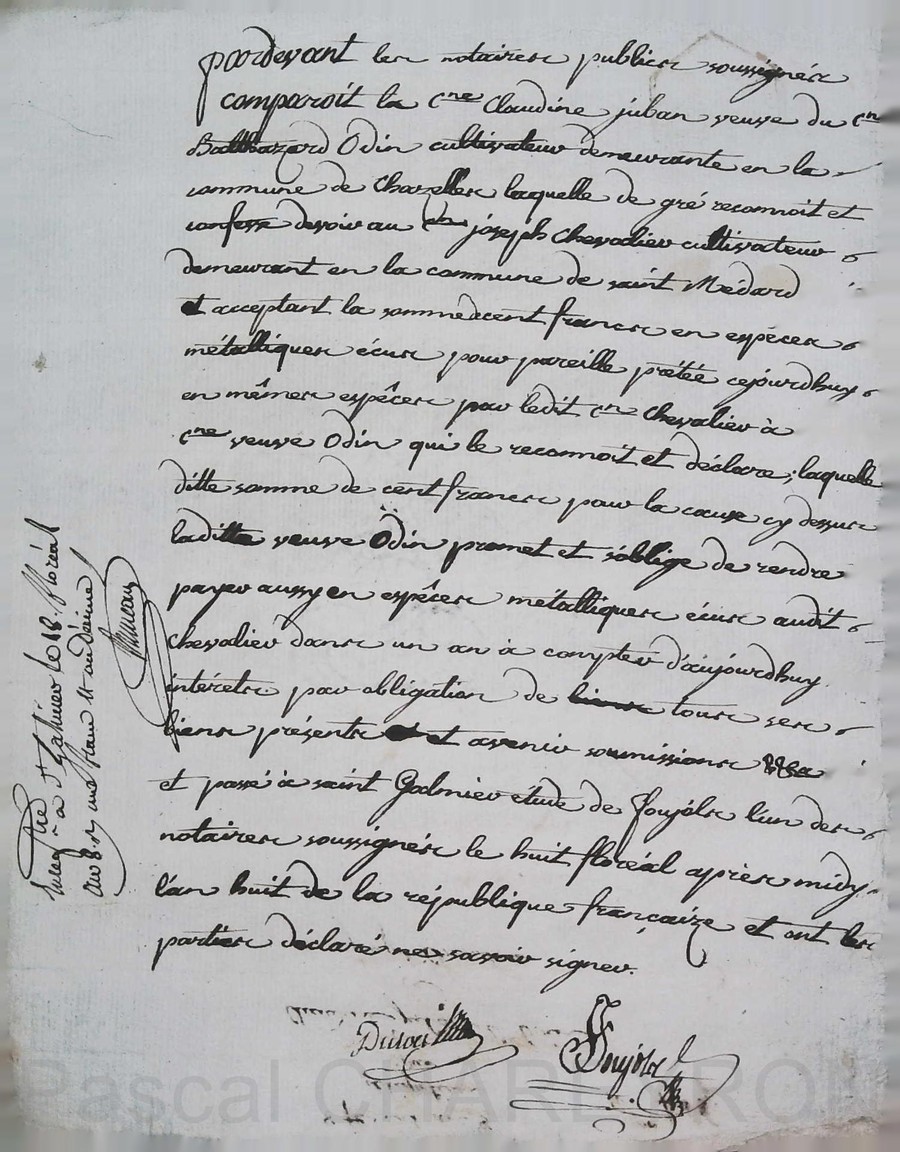 pardevant les notaires publics soussignés
comparoit la Cne Claudine juban veuve du Cn
Balthazard Odin cultivateur demeurante en la
commune de Chazelles laquelle de gré reconnoit et
confesse devoir au Cn joseph Chevalier cultivateur
demeurant en la commune de saint Médard
et acceptant la somme de cent francs en espéces
métalliques écus pour pareille prétée cejourdhuy
en mêmes espêces par ledit Cn Chevalier à
Cne veuve Odin qui le reconnoit et déclare ; laquelle
ditte somme de cent francs pour la cause cy dessus
laditte veuve Odin promet et s'oblige de rendre
payer aussy en espêces métalliques écus audit
Chevalier dans un an à compter d'aujourdhuy
intérets par obligation de biens tous ses
biens présents et avenir soumissions
et passé à saint Galmier étude de Joujols l'un des
notaires soussignés le huit floréal après midy
l'an huit de la république françaize et ont les
parties déclaré ne savoir signer.
Joujols
à St Galmier le 18. floréal
an 8. un franc
Pascal CHAR RON